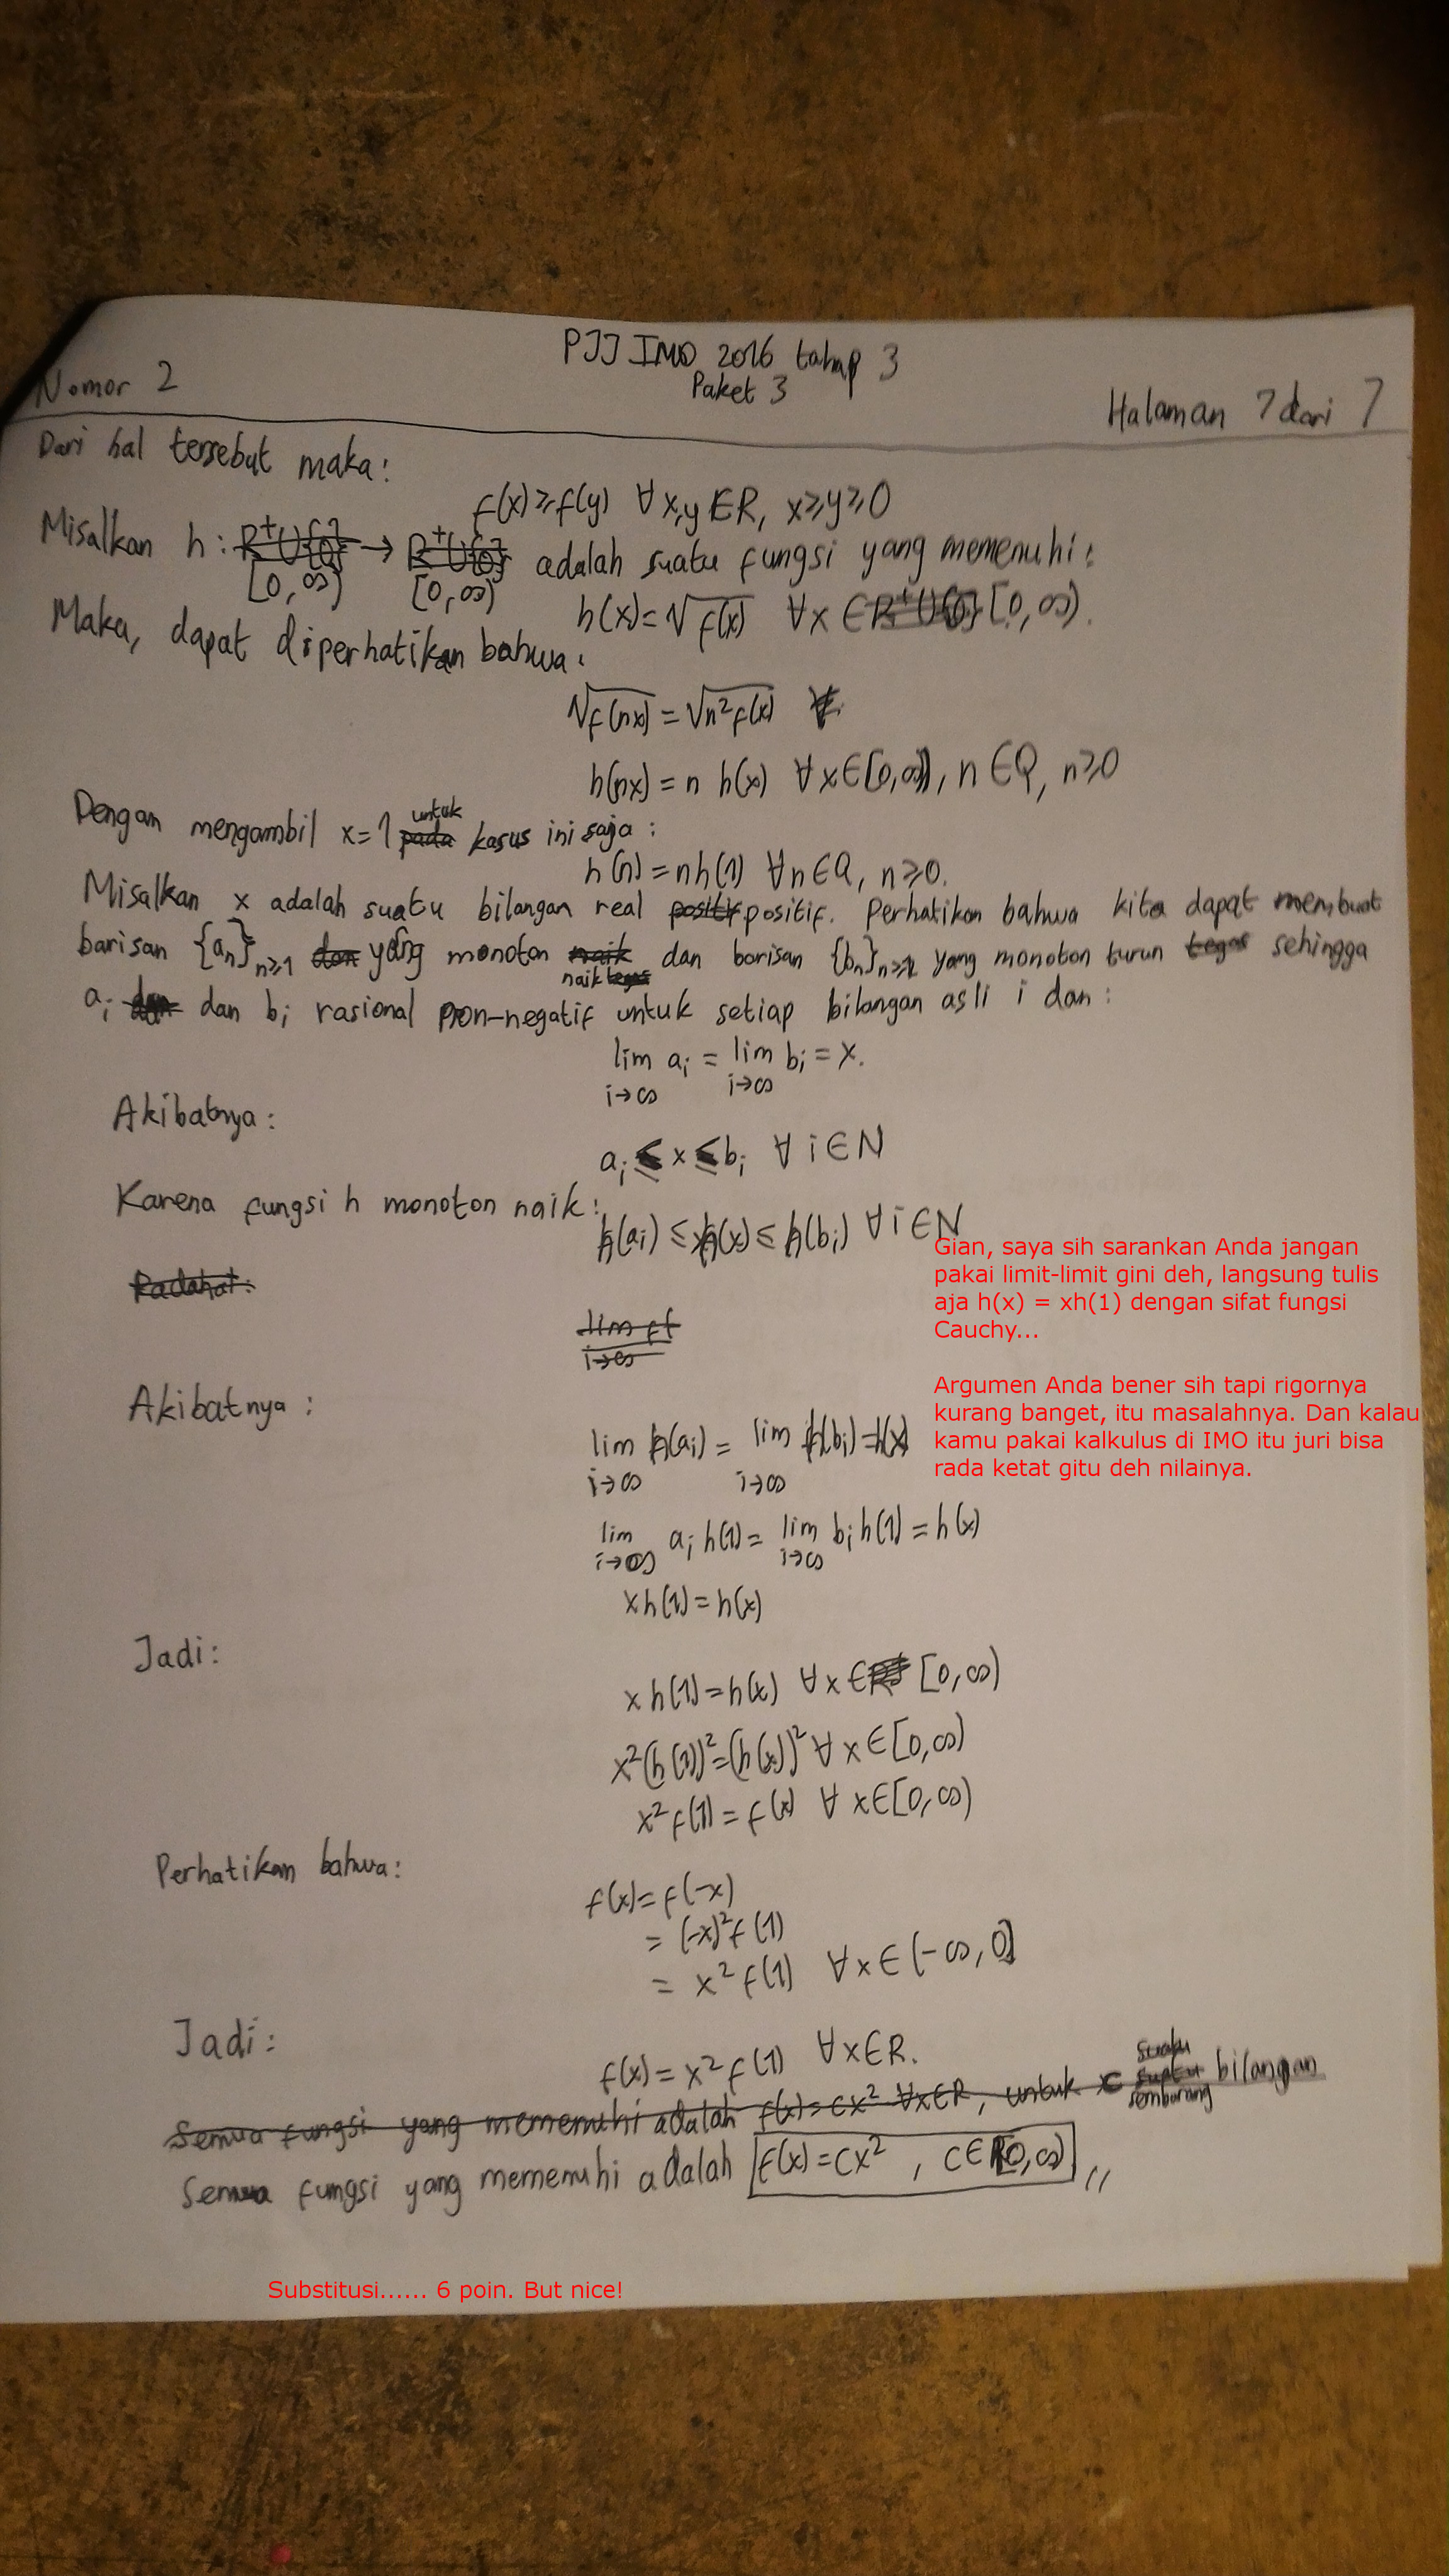 PJJ IMO 2016 tahap 3
Paket 3
Nomor 2
Halaman 7 dari 7
Dari hal tersebut maka:
f(x) ≥ f(y) ∀ x,y ∈ R, x ≥ y ≥ 0
Misalkan h: R⁺∪{0} → R⁺∪{0} adalah suatu fungsi yang memenuhi:
[0, ∞) [0, ∞)
h(x) = √f(x) ∀x ∈ [0, ∞).
Maka, dapat diperhatikan bahwa:
√f(nx) = √n²f(x)
h(nx) = n h(x) ∀ x ∈ [0, ∞), n ∈ Q, n ≥ 0
untuk
Dengan mengambil x = 1 pada kasus ini saja:
h(n) = nh(1) ∀n ∈ Q, n ≥ 0.
Misalkan x adalah suatu bilangan real positif positif. Perhatikan bahwa kita dapat membuat
barisan {aₙ}ₙ≥₁ dan yang monoton naik dan barisan {bₙ}ₙ≥₁ yang monoton turun tegas sehingga
naik tegas
aᵢ dan dan bᵢ rasional non-negatif untuk setiap bilangan asli i dan:
lim aᵢ = lim bᵢ = x.
i→∞ i→∞
Akibatnya:
aᵢ ≤ x ≤ bᵢ ∀ i ∈ N
Karena fungsi h monoton naik:
h(aᵢ) ≤ h(x) ≤ h(bᵢ) ∀ i ∈ N
Gian, saya sih sarankan Anda jangan
pakai limit-limit gini deh, langsung tulis
aja h(x) = xh(1) dengan sifat fungsi
Cauchy...
Padahal:
lim f(
i→∞
Argumen Anda bener sih tapi rigornya
kurang banget, itu masalahnya. Dan kalau
kamu pakai kalkulus di IMO itu juri bisa
rada ketat gitu deh nilainya.
Akibatnya:
lim h(aᵢ) = lim h(bᵢ) = h(x)
i→∞ i→∞
lim aᵢ h(1) = lim bᵢ h(1) = h(x)
i→∞ i→∞
x h(1) = h(x)
Jadi:
x h(1) = h(x) ∀ x ∈ [0, ∞)
x²(h(1))² = (h(x))² ∀ x ∈ [0, ∞)
x² f(1) = f(x) ∀ x ∈ [0, ∞)
Perhatikan bahwa:
f(x) = f(-x)
= (-x)² f(1)
= x² f(1) ∀ x ∈ (-∞, 0]
Jadi:
f(x) = x² f(1) ∀ x ∈ R.
Semua fungsi yang memenuhi adalah f(x) = cx² ∀x ∈ R, untuk c suatu bilangan
sembarang
Semua fungsi yang memenuhi adalah f(x) = cx², c ∈ [0, ∞) //
Substitusi...... 6 poin. But nice!